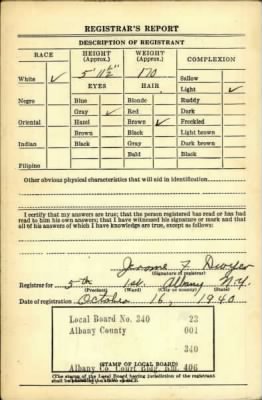 REGISTRAR'S REPORT
DESCRIPTION OF REGISTRANT
RACE HEIGHT (Approx.) WEIGHT (Approx.) COMPLEXION
White ✓ 5' 11½" 170 Sallow
EYES HAIR Light ✓
Negro Blue Blonde Ruddy
Gray ✓ Red Dark
Oriental Hazel Brown ✓ Freckled
Brown Black Light brown
Indian Black Gray Dark brown
Bald Black
Filipino
Other obvious physical characteristics that will aid in identification
I certify that my answers are true; that the person registered has read or has had
read to him his own answers; that I have witnessed his signature or mark and that
all of his answers of which I have knowledge are true, except as follows:
Jerome F. Dwyer
(Signature of registrar)
Registrar for 5th 1st. Albany N.Y.
(Precinct) (Ward) (City or county) (State)
Date of registration October 16, 1940
Local Board No. 340 22
Albany County 001
340
(STAMP OF LOCAL BOARD)
Albany Co. Court Bldg. RM. 406
(The stamp of the Local Board having jurisdiction of the registrant
shall be placed in the above space.)